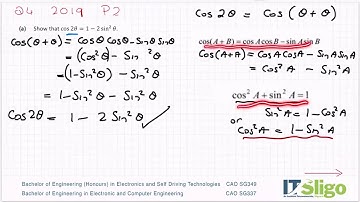 Q4 2019 P2
(a) Show that cos 2θ = 1 − 2 sin² θ.
Cos(θ+θ) = Cosθ Cosθ − Sinθ Sinθ
= (Cos²θ) − Sin²θ
= (1 − Sin²θ) − Sin²θ
= 1 − Sin²θ − Sin²θ
Cos2θ = 1 − 2 Sin²θ ✓
Cos 2θ = Cos (θ + θ)
cos(A + B) = cos A cos B − sin A sin B
Cos(A+A) = Cos A Cos A − Sin A Sin A
= Cos²A − Sin²A
cos² A + sin² A = 1
Sin²A = 1 − Cos²A
or Cos²A = 1 − Sin²A
Bachelor of Engineering (Honours) in Electronics and Self Driving Technologies CAO SG349
Bachelor of Engineering in Electronic and Computer Engineering CAO SG337
IT Sligo